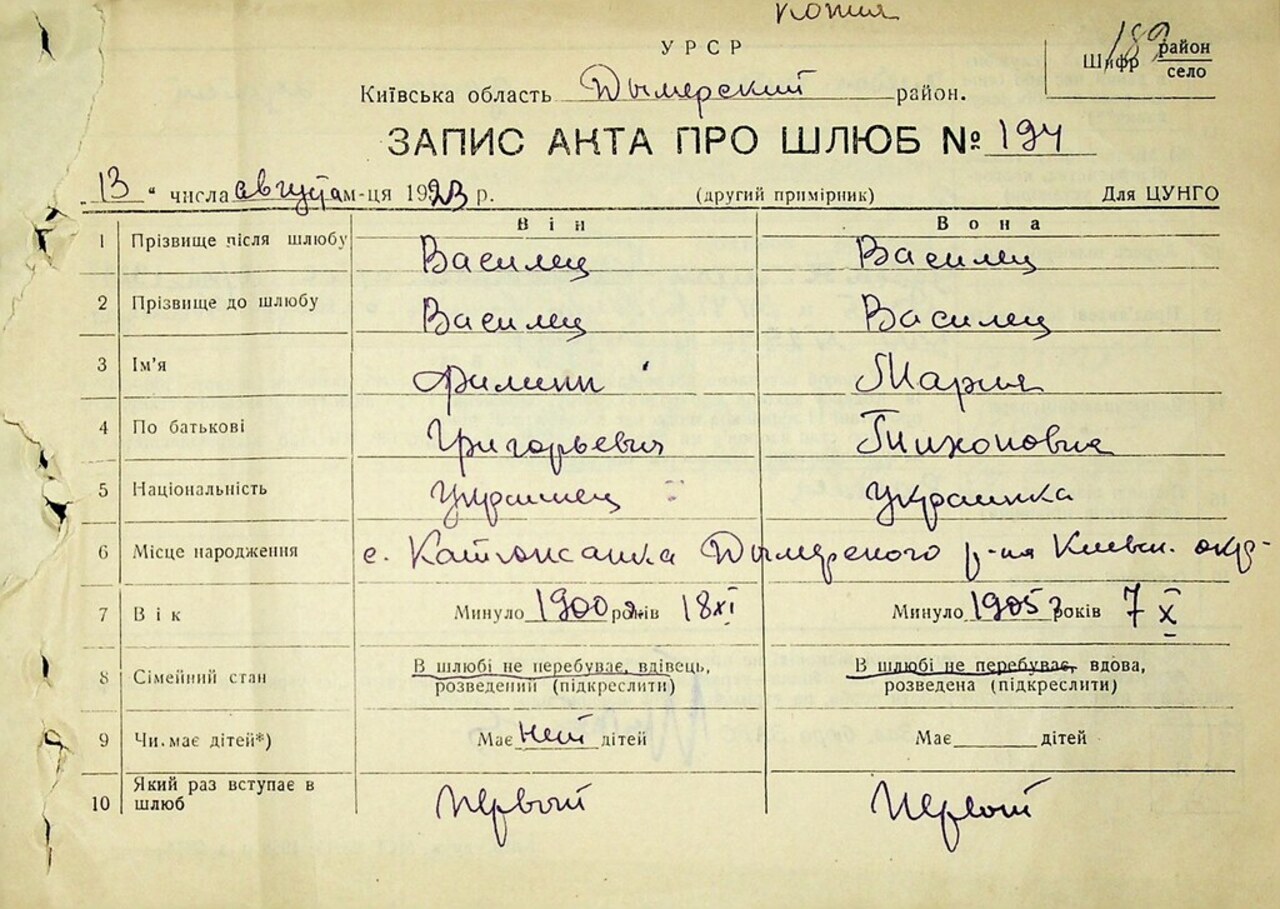 копия
УРСР
Шифр 189 район село
Київська область Дымерский район.
ЗАПИС АКТА ПРО ШЛЮБ № 194
„13“ числа августа м-ця 1923 р. (другий примірник) Для ЦУНГО
Він Вона
1 Прізвище після шлюбу Василец Василец
2 Прізвище до шлюбу Василец Василец
3 Ім'я Филипп Мария
4 По батькові Григорьевич Тихоновна
5 Національність Украинец Украинка
6 Місце народження с. Катюжанка Дымерского р-на Киевск. окр-
7 Вік Минуло 1900 років 18 XI Минуло 1905 років 7 X
8 Сімейний стан В шлюбі не перебуває, вдівець, розведений (підкреслити) В шлюбі не перебуває, вдова, розведена (підкреслити)
9 Чи має дітей*) Має нет дітей Має дітей
10 Який раз вступає в шлюб первый первый